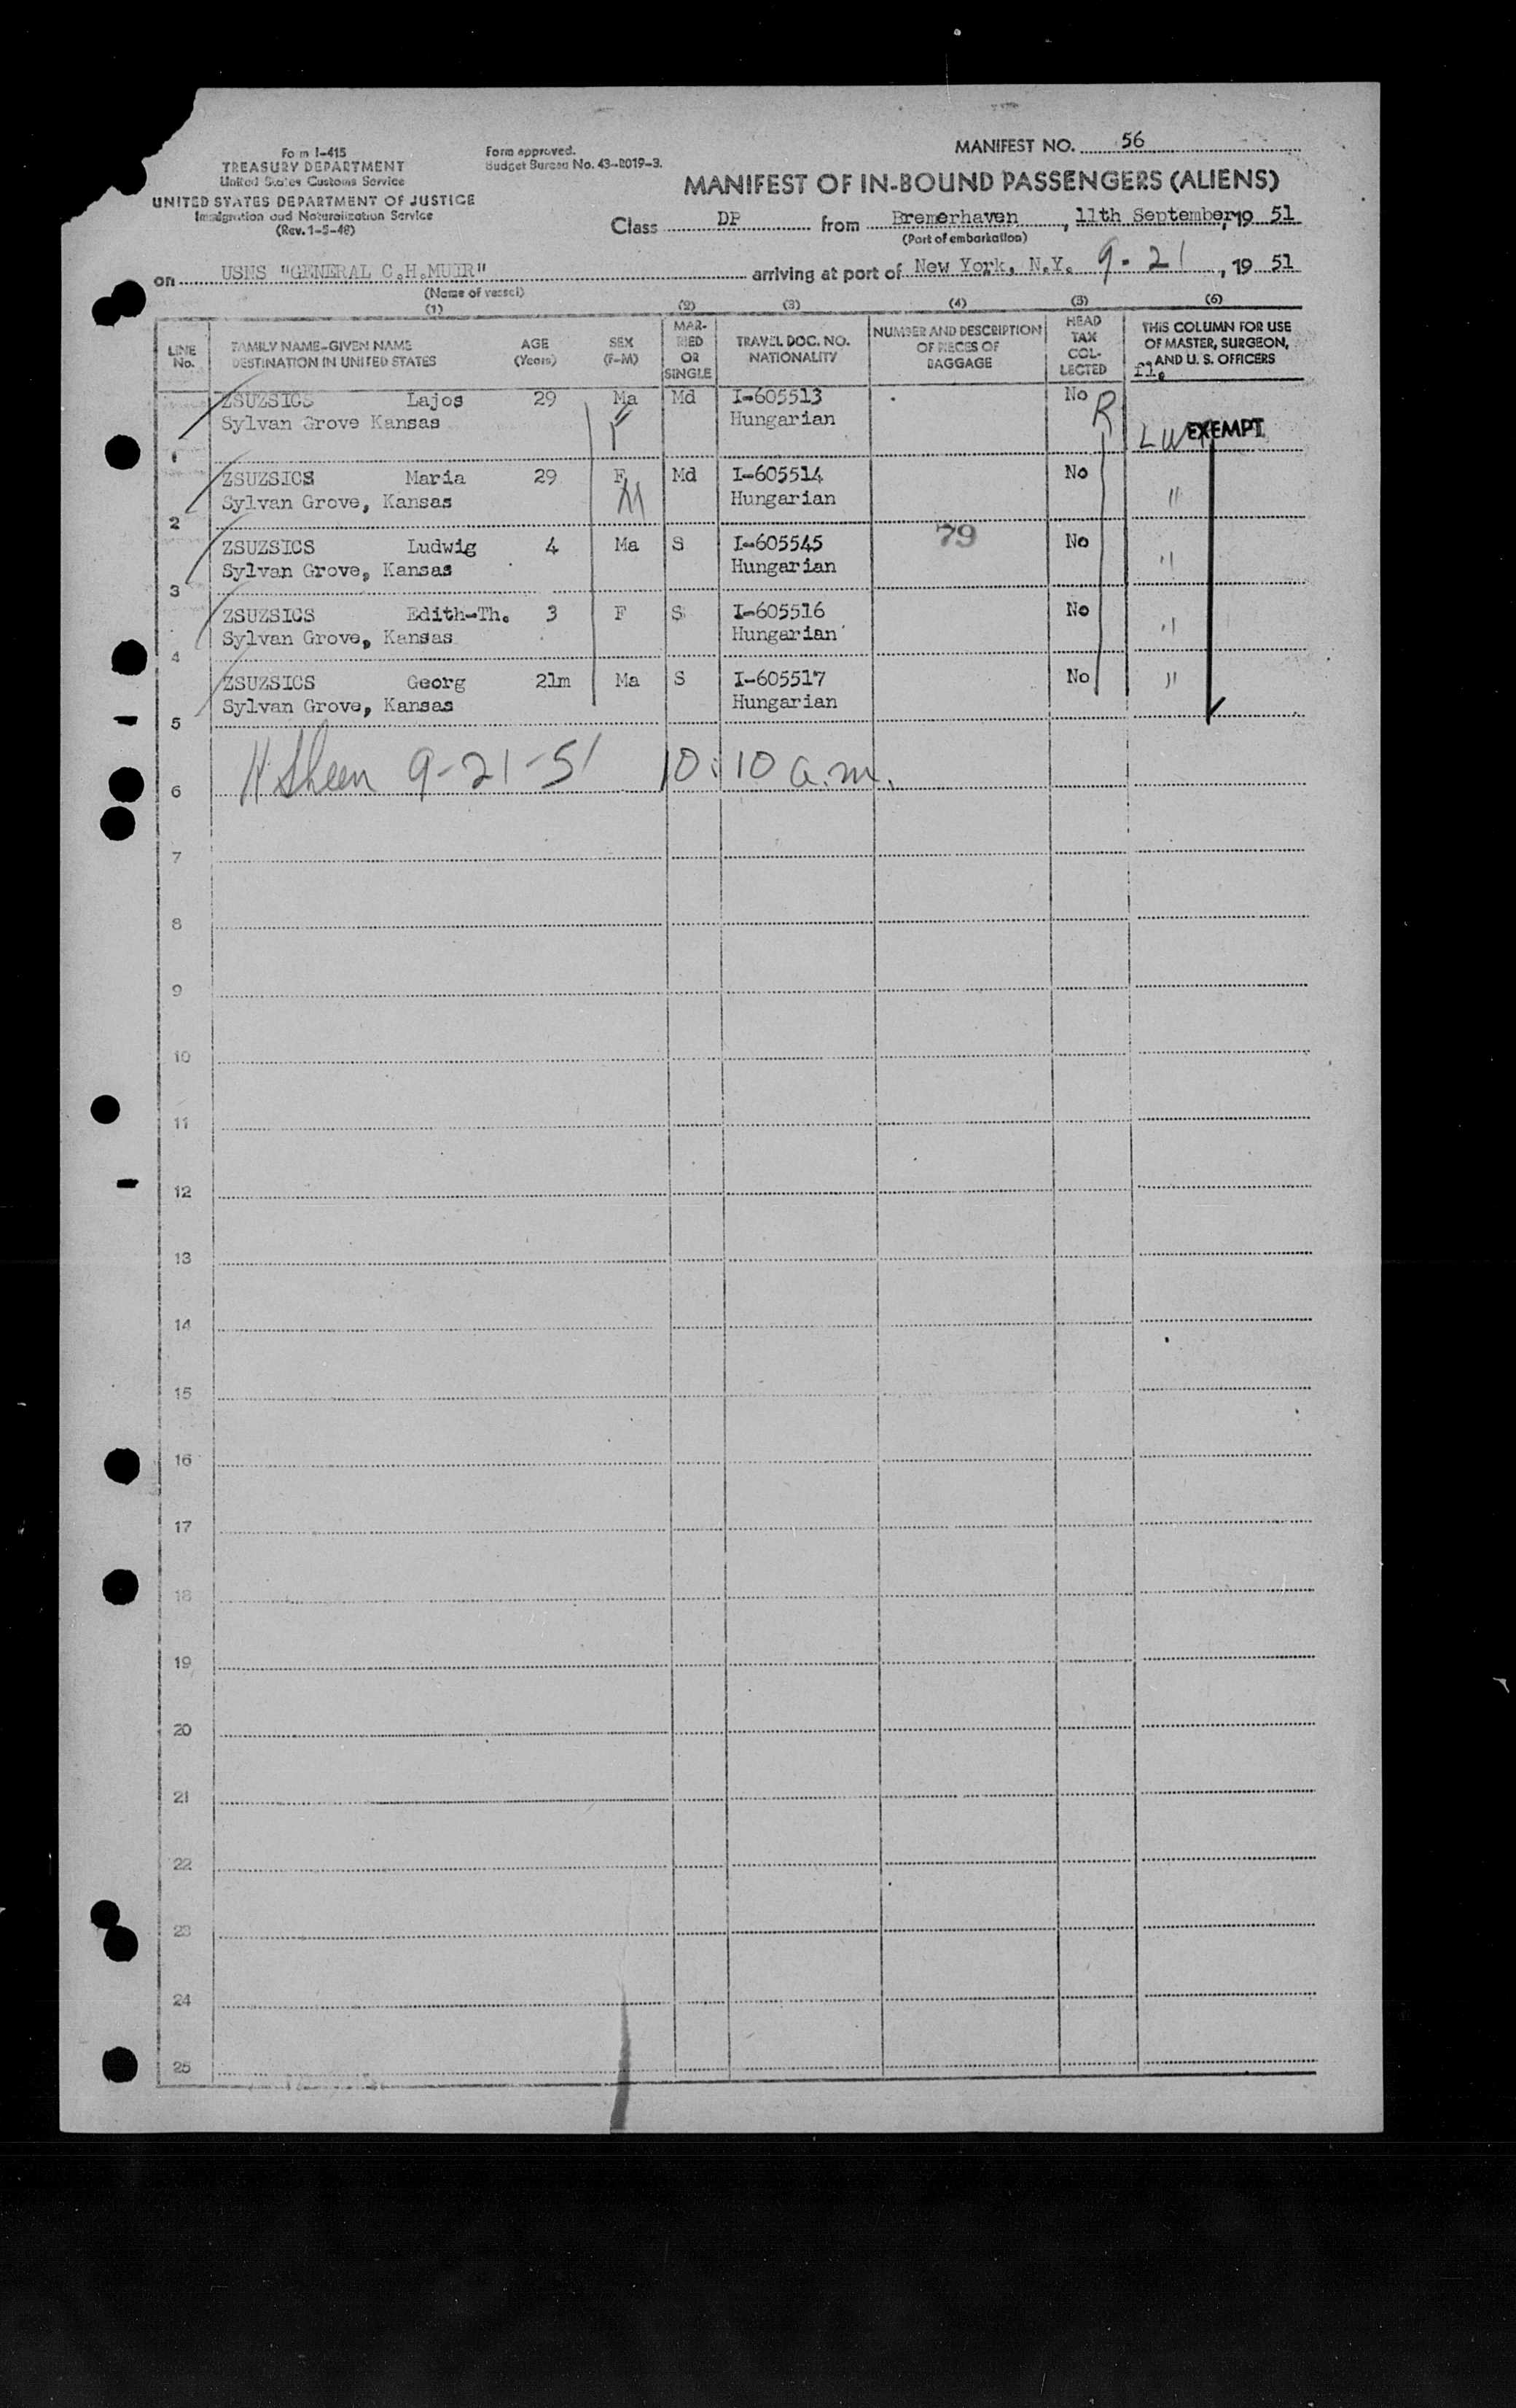 MANIFEST NO. 56
Form I-415
TREASURY DEPARTMENT
United States Customs Service
UNITED STATES DEPARTMENT OF JUSTICE
Immigration and Naturalization Service
(Rev. 1-5-48)
Form approved.
Budget Bureau No. 43-R019-3.
MANIFEST OF IN-BOUND PASSENGERS (ALIENS)
Class DP from Bremerhaven, 11th September, 19 51
(Port of embarkation)
on USNS "GENERAL C.H.MUIR" arriving at port of New York, N.Y. 9-21, 19 51
(Name of vessel)
(1) (2) (3) (4) (5) (6)
LINE No. FAMILY NAME-GIVEN NAME DESTINATION IN UNITED STATES AGE (Years) SEX (F-M) MAR-RIED OR SINGLE TRAVEL DOC. NO. NATIONALITY NUMBER AND DESCRIPTION OF PIECES OF BAGGAGE HEAD TAX COL-LECTED THIS COLUMN FOR USE OF MASTER, SURGEON, AND U. S. OFFICERS
fl.
ZSUZSICS Lajos 29 Ma Md I-605513 No R
Sylvan Grove Kansas F Hungarian EXEMPT
1
ZSUZSICS Maria 29 F Md I-605514 No
Sylvan Grove, Kansas M Hungarian "
2 79
ZSUZSICS Ludwig 4 Ma S I-605545 No
Sylvan Grove, Kansas Hungarian "
3
ZSUZSICS Edith-Th. 3 F S I-605516 No
Sylvan Grove, Kansas Hungarian "
4
ZSUZSICS Georg 21m Ma S I-605517 No "
Sylvan Grove, Kansas Hungarian
5
6 H Sheen 9-21-51 10:10 a.m.
7
8
9
10
11
12
13
14
15
16
17
18
19
20
21
22
23
24
25